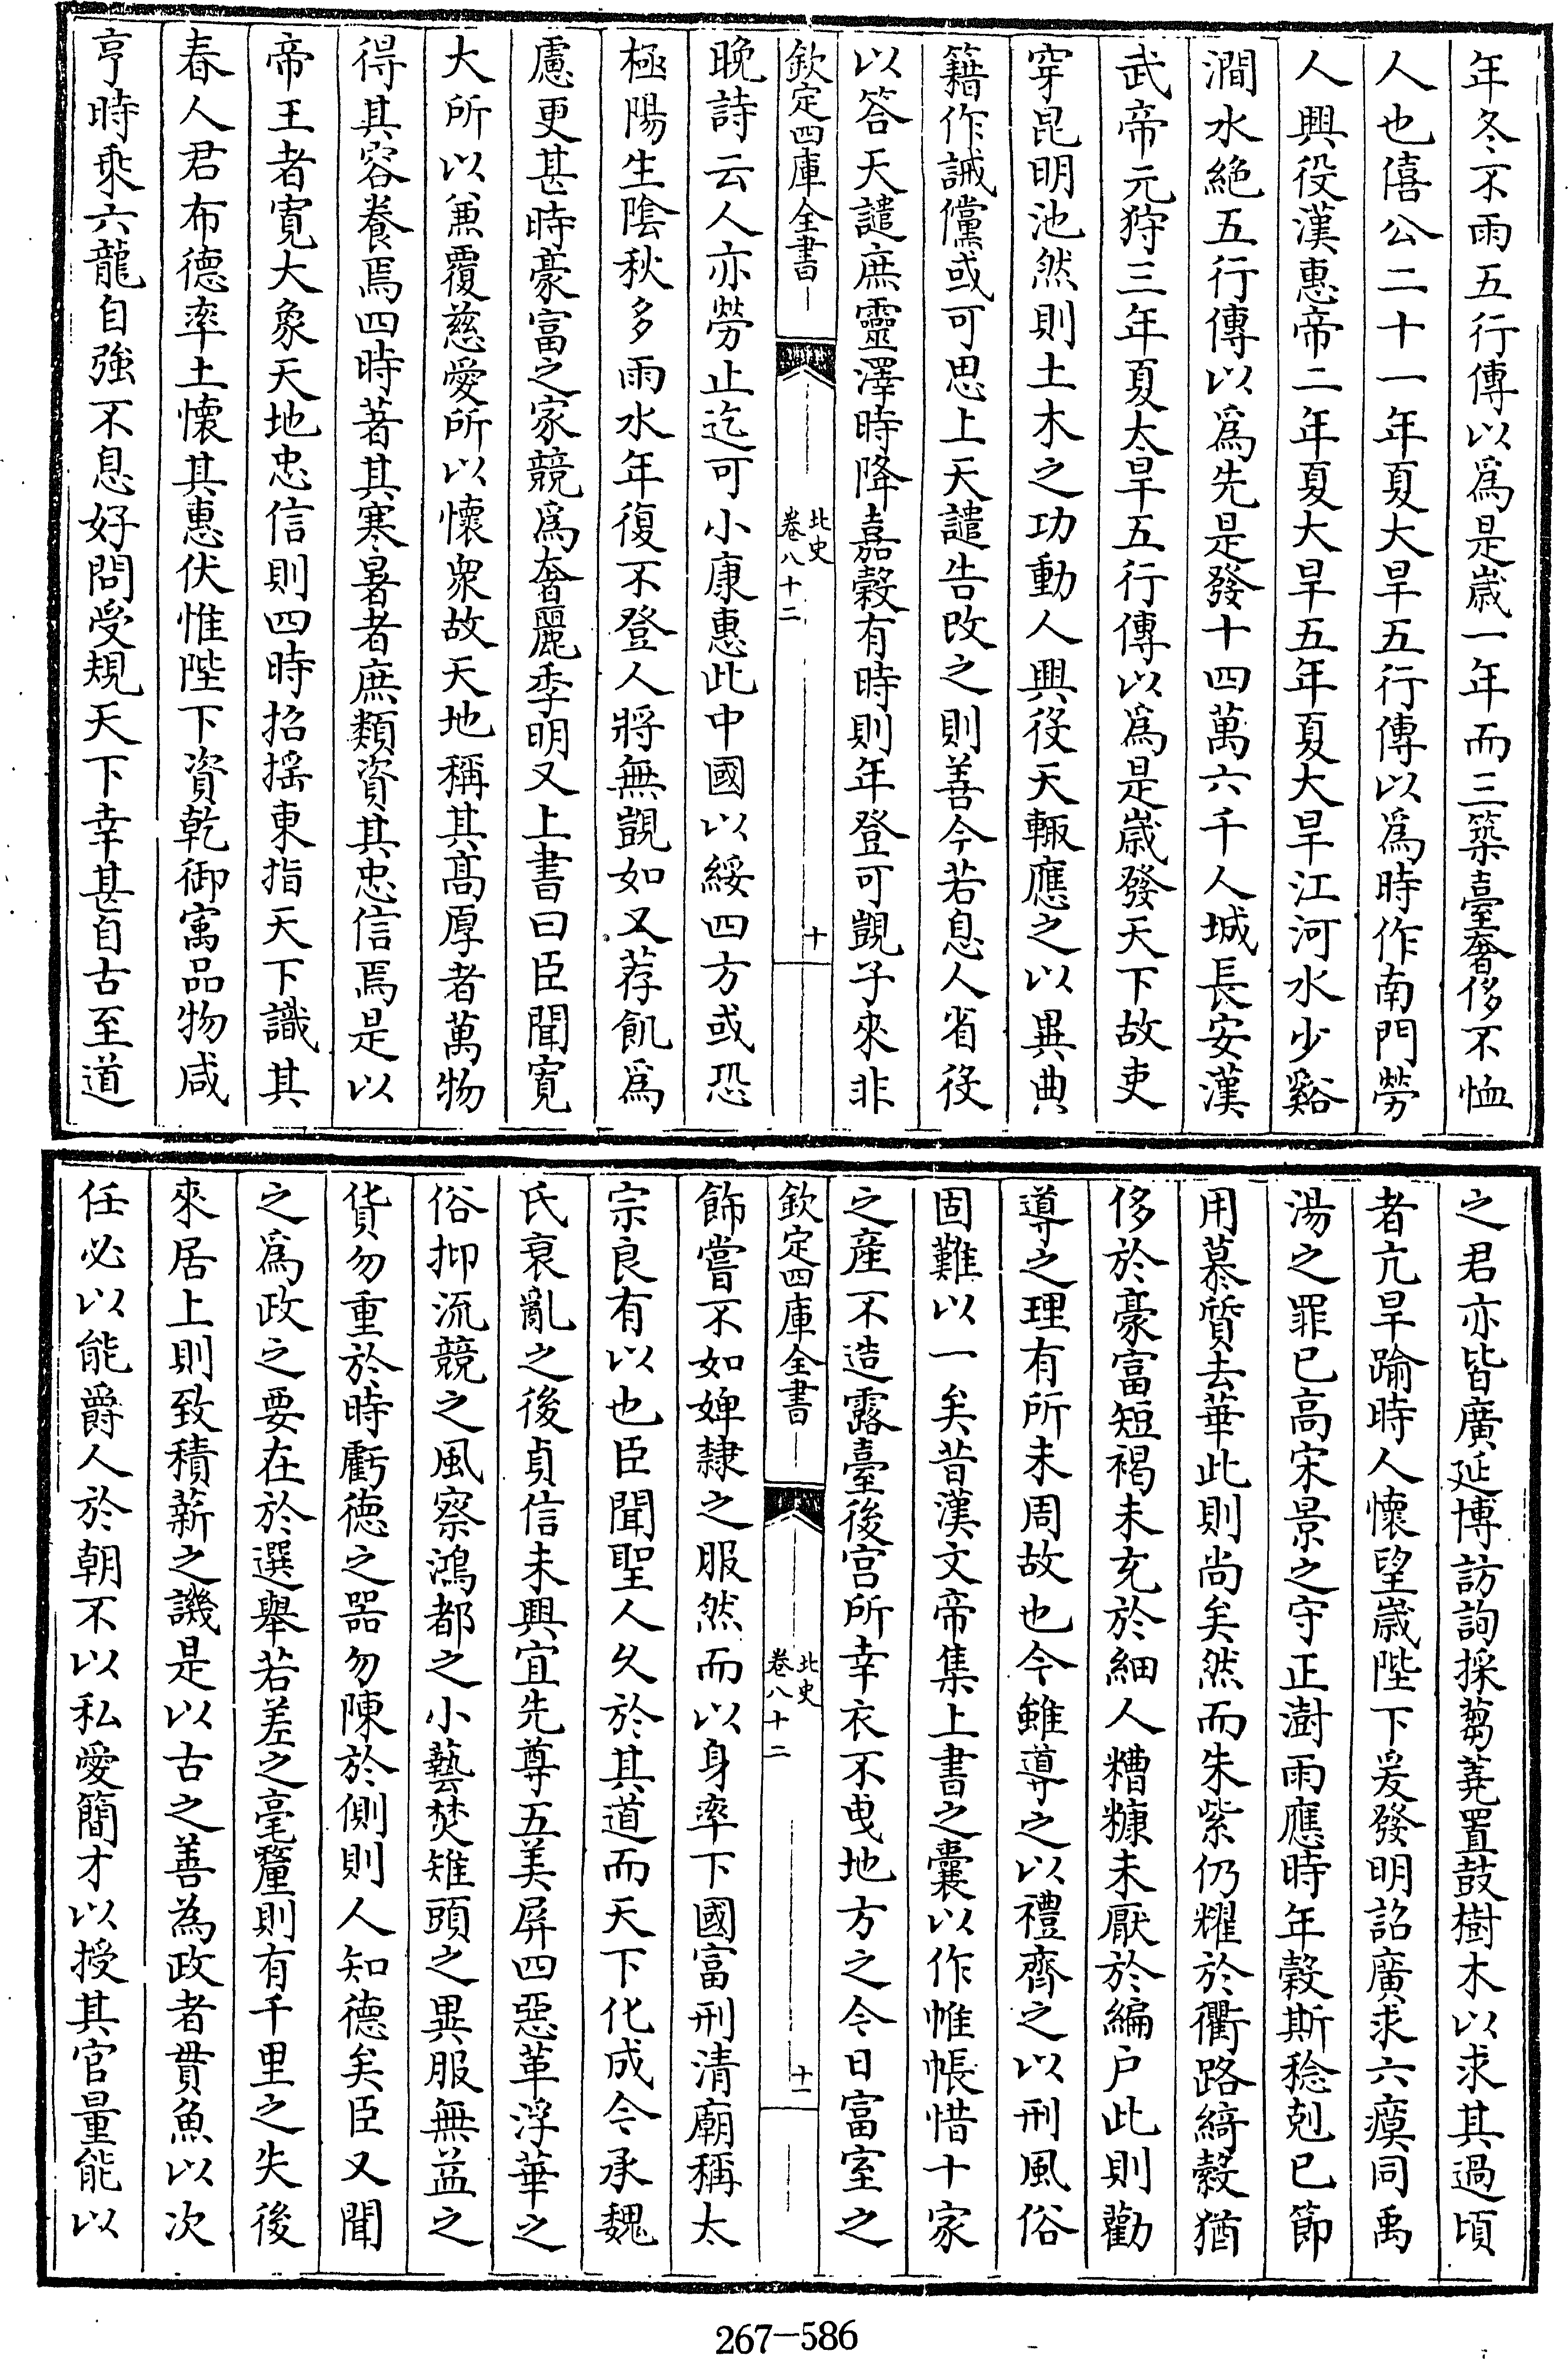 年冬不雨五行傳以爲是歲一年而三築臺奢侈不恤
人也僖公二十一年夏大旱五行傳以爲時作南門勞
人興役漢惠帝二年夏大旱五年夏大旱江河水少谿
澗水絶五行傳以爲先是發十四萬六千人城長安漢
武帝元狩三年夏大旱五行傳以爲是歲發天下故吏
穿昆明池然則土木之功動人興役天輒應之以異典
籍作誡儻或可思上天譴告改之則善今若息人省役
以答天譴庶靈澤時降嘉穀有時則年登可覬子來非
欽定四庫全書
北史
卷八十二
十
晚詩云人亦勞止迄可小康惠此中國以綏四方或恐
極陽生陰秋多雨水年復不登人將無覬如又荐飢爲
慮更甚時豪富之家競爲奢麗季明又上書曰臣聞寛
大所以兼覆慈愛所以懷衆故天地稱其髙厚者萬物
得其容養焉四時著其寒暑者庶類資其忠信焉是以
帝王者寛大象天地忠信則四時招揺東指天下識其
春人君布德率土懷其惠伏惟陛下資乾御寓品物咸
亨時乘六龍自強不息好問受規天下幸甚自古至道
之君亦皆廣延博訪詢採蒭蕘置鼓樹木以求其過頃
者亢旱踰時人懷望歲陛下爰發明詔廣求六瘼同禹
湯之罪已高宋景之守正澍雨應時年穀斯稔剋已節
用慕質去華此則尚矣然而朱紫仍耀於衢路綺縠猶
侈於豪富短褐未充於細人糟糠未厭於編户此則勸
導之理有所未周故也今雖導之以禮齊之以刑風俗
固難以一矣昔漢文帝集上書之囊以作帷帳惜十家
之産不造露臺後宫所幸衣不曵地方之今日富室之
欽定四庫全書
北史
卷八十二
十一
飾嘗不如婢隸之服然而以身率下國富刑清廟稱太
宗良有以也臣聞聖人久於其道而天下化成今承魏
氏衰亂之後貞信未興宜先尊五美屏四惡革浮華之
俗抑流競之風察鴻都之小藝焚雉頭之異服無益之
貨勿重於時虧德之器勿陳於側則人知德矣臣又聞
之爲政之要在於選舉若差之毫釐則有千里之失後
來居上則致積薪之譏是以古之善為政者貫魚以次
任必以能爵人於朝不以私愛簡才以授其官量能以
267-586